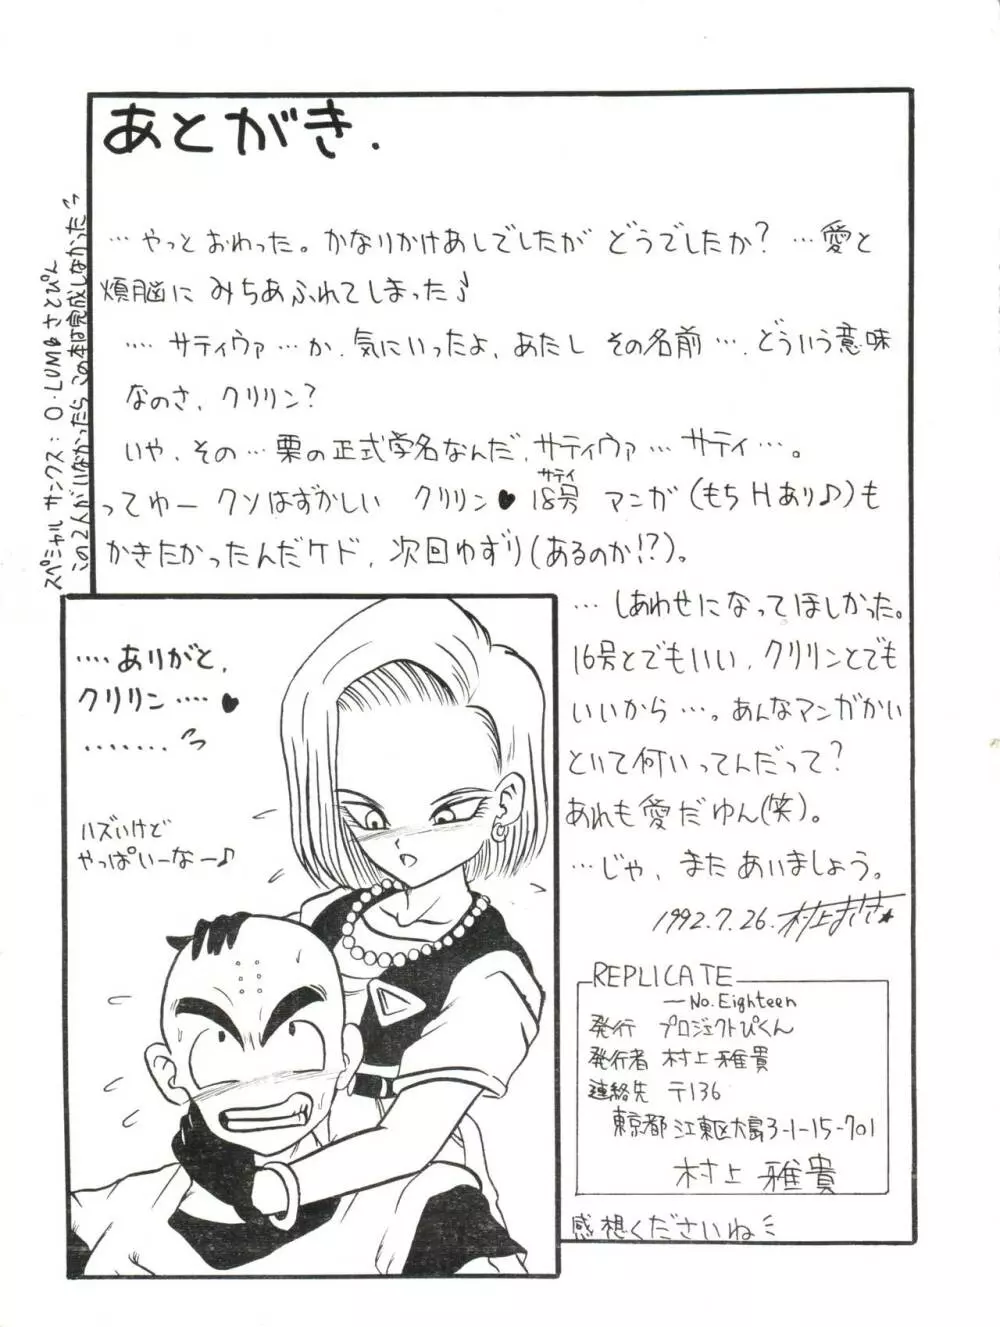 あとがき.
…やっとおわった。かなりかけあしでしたが どうでしたか? …愛と
煩脳に みちあふれてしまった♪
…. サティヴァ …か. 気にいったよ, あたし その名前 …. どういう意味
なのさ, クリリン?
いや, その … 栗の正式学名なんだ, サティヴァ … サティ …。
ってゆー クソはずかしい クリリン♥18号 マンガ (もちHあり♪)も
サティ
かきたかったんだケド, 次回ゆずり(あるのか!?)。
… しあわせになってほしかった。
16号とでもいい, クリリンとでも
いいから …。あんなマンガかい
といて何いってんだって?
あれも愛だゆん(笑)。
…じゃ, またあいましょう。
1992.7.26. 村上まさき★
スペシャルサンクス: O・LUM さとぴん
この2人がいなかったら この本は完成しなかった
…. ありがと,
クリリン …. ♥
.......
ハズいけど
やっぱいーなー♪
REPLICATE
—No. Eighteen
発行 プロジェクトぴくん
発行者 村上 雅貴
連絡先 〒136
東京都 江東区大島3-1-15-701
村上 雅貴
感想くださいね